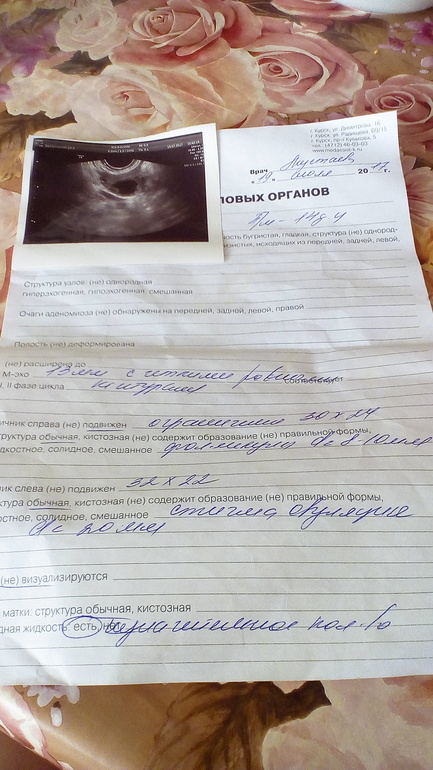 г. Курск, ул. Димитрова, 16
г. Курск, ул. Радищева, 60/15
г. Курск, пр-т Кулакова, 5
тел. (4712) 46-03-03
Врач
19 июля 2017 г.
ПОЛОВЫХ ОРГАНОВ
бугристая, гладкая, структура (не) однород-
исходящих из передней, задней, левой,
Структура узлов: (не) однородная
гиперэхогенная, гипоэхогенная, смешанная
Очаги аденомиоза (не) обнаружены на передней, задней, левой, правой
Полость (не) деформирована
(не) расширена до
М-эхо с четкими ровными соответствует
I, II фазе цикла контурами
ичник справа (не) подвижен ограничении 30 х 24
труктура обычная, кистозная (не) содержит образование (не) правильной формы,
дкостное, солидное, смешанное фолликулы 8-10мм
ик слева (не) подвижен 32 х 22
ктура обычная, кистозная (не) содержит образование (не) правильной формы,
остное, солидное, смешанное стигма овуляции
20 мм
(не) визуализируются
матки: структура обычная, кистозная
дная жидкость: есть, нет незначительное кол-во